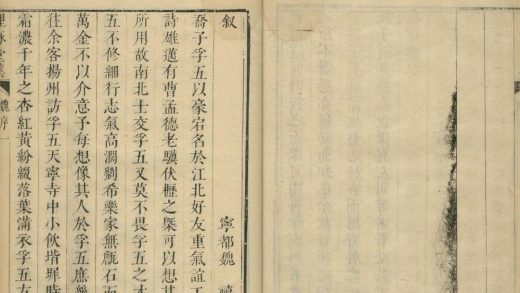 叙
寧都魏禧
喬子孚五以豪宕名於江北好友重氣誼工
詩雄邁有曹孟德老驥伏櫪之槩可以想其
所用故南北士交孚五又莫不畏孚五之才
五不修細行志氣高濶劉希樂家無甔石而
萬金不以介意予每想像其人於孚五庶幾
往余客揚州訪孚五天寧寺中小飲堦墀時
霜濃千年之杏紅黃紛綴落葉滿衣孚五左
魏序 一